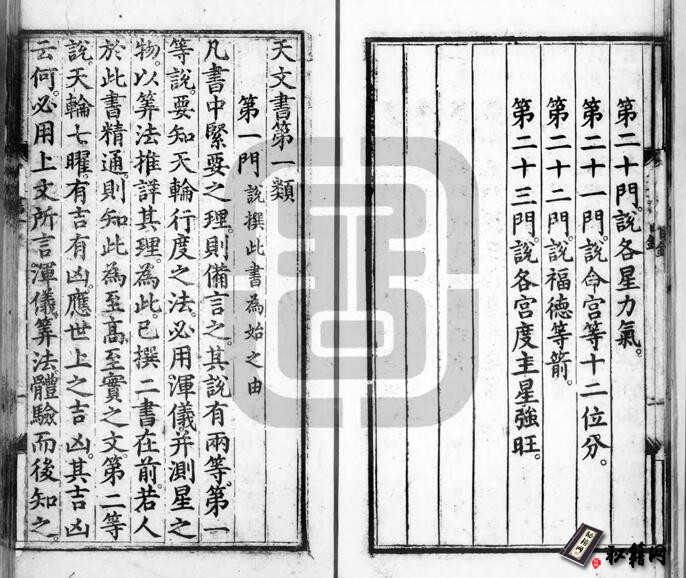 第二十門。說各星力氣。
第二十一門。說命宮等十二位分。
第二十二門。說福德等箭。
第二十三門。說各宮度主星強旺。
天文書第一類
第一門 說撰此書為始之由
凡書中緊要之理。則備言之。其說有兩等。第一
等說。要知天輪行度之法。必用渾儀。并測星之
物。以筭法推詳其理。為此。已撰二書在前。若人
於此書精通。則知此為至高至實之文。第二等
說。天輪七曜。有吉有凶。應世上之吉凶。其吉凶
云何。必用上文所言渾儀筭法。體驗而後知之。
秘籍网